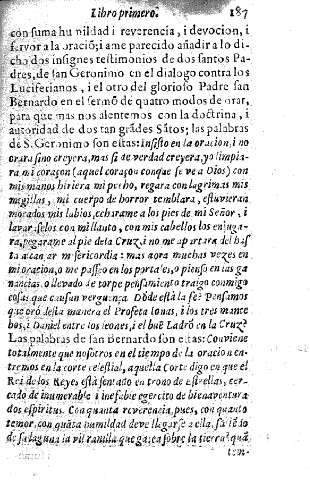 Libro primero. 187
con suma hu nildad i reverencia, i devocion, i
fervor a la oraciõ; i ame parecido añadir a lo di-
cho dos insignes testimonios de dos santos Pa-
dres, de san Geronimo en el dialogo contra los
Luciferianos, i el otro del glorioso Padre san
Bernardo en el sermõ de quatro modos de orar,
para que mas nos alentemos con la doctrina, i
autoridad de dos tan grãdes Sãtos; las palabras
de S. Geronimo son estas: Insisto en la oracion, i no
orara sino creyera, mas si de verdad creyera, yo limpia-
ra mi coraçon (aquel coraçon conque se ve a Dios) con
mis manos hiriera mi pecho, regara con lagrimas mis
megillas, mi cuerpo de horror temblara, estuvieran
morados mis labios, echarame a los pies de mi Señor, i
lavaraselos con mi llanto, con mis cabellos los enjuga-
ra, pegarame al pie de la Cruz, i no me apartara de l has
ta alcançar misericordia: mas aora muchas vezes en
mi oracion, o me passeo en los portales, o pienso en las ga
nancias, o llevado de torpe pensamiento traigo conmigo
cosas que causan verguença. Dõde està la fè? Pensamos
que orò desta manera el Profeta Ionas, i los tres mance
bos, i Daniel entre los leones, i el buẽ Ladrõ en la Cruz?
Las palabras de san Bernardo son estas: Conviene
totalmente que nosotros en el tiempo de la oracion en-
tremos en la corte celestial, aquella Corte digo en que el
Rei de los Reyes està sentado en trono de estrellas, cer-
cado de inumerable i inefable egercito de bienaventura
dos espiritus. Con quanta reverencia, pues, con quãto
temor, con quãta humildad deve llegarse a ella, saliẽdo
de su laguna la vil ranilla que gatea sobre la tierra? quã
tem-